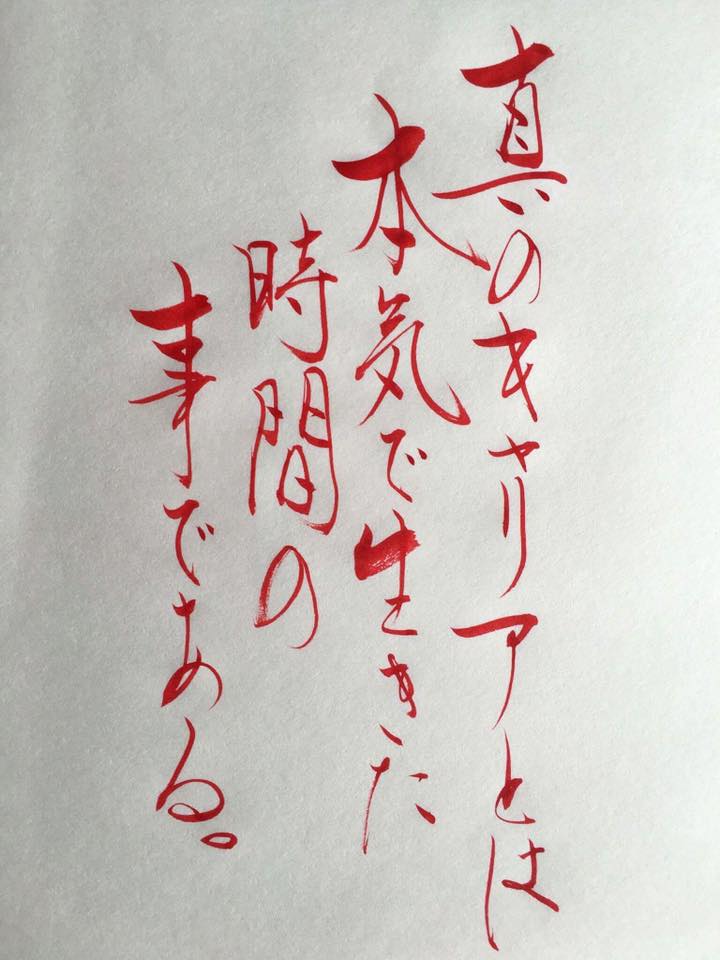 真のキャリアとは
本気で生きた
時間の
事である。